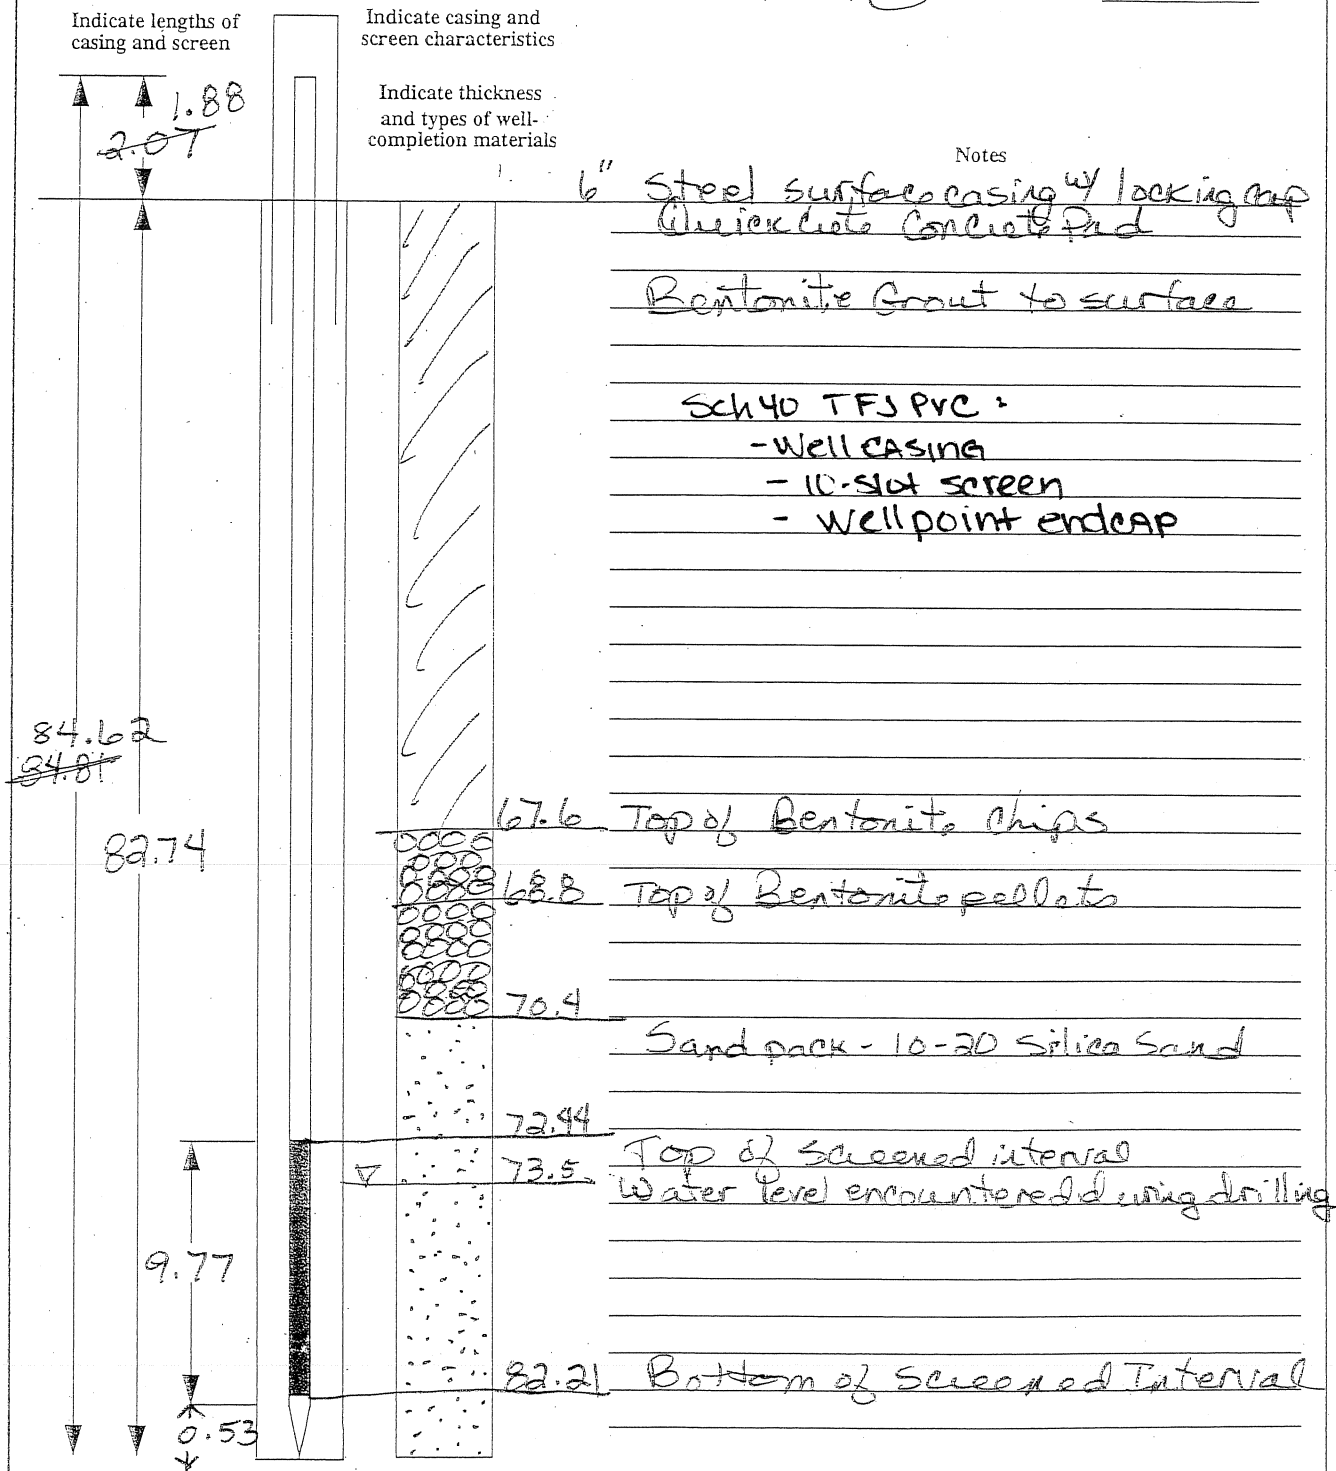 Indicate lengths of
casing and screen
Indicate casing and
screen characteristics
Indicate thickness
and types of well-
completion materials
Notes
1.88
2.07
6" Steel surface casing w/ locking cap
Quickcrete Concrete Pad
Bentonite Grout to surface
Sch 40 TFJ PVC :
- Well CASING
- 10-slot screen
- Wellpoint endcap
84.62
84.81
82.74
67.6 Top of Bentonite Chips
68.8 Top of Bentonite pellets
70.4
Sand pack - 10-20 Silica Sand
72.44
Top of Screened interval
73.5
Water level encountered during drilling
9.77
82.21 Bottom of Screened Interval
0.53